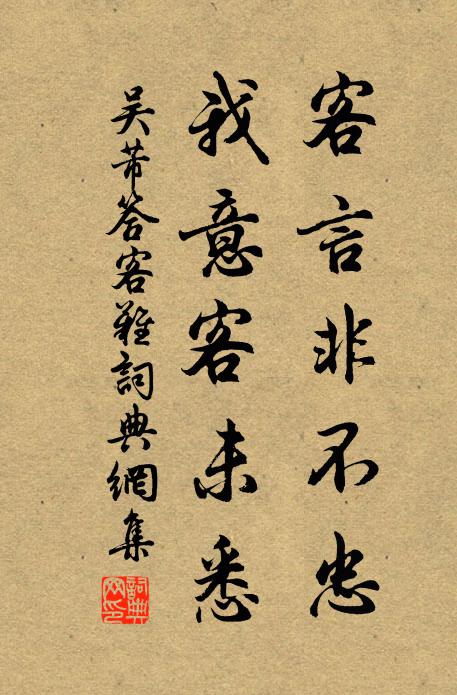 客言非不忠
我意客未悉
吴芾答客難詞典網集
詞典网印